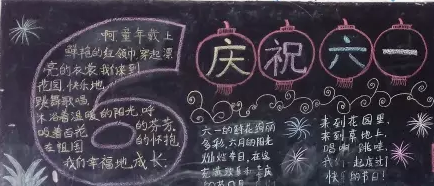 啊童年载上
鲜艳的红领巾穿起漂
亮的衣裳我们来到
花园,快乐地
跳舞歌唱,
沐浴着温暖的阳光,呼
吸着百花 的芬芳,
在祖国 的怀抱
我们幸福地成长
庆祝六一
六一的鲜花绚丽
多彩,六月的阳光
灿烂夺目,在这
来到花园里,
来到草地上,
唱啊 跳哇,
我们 起庆祝
快乐的节日!